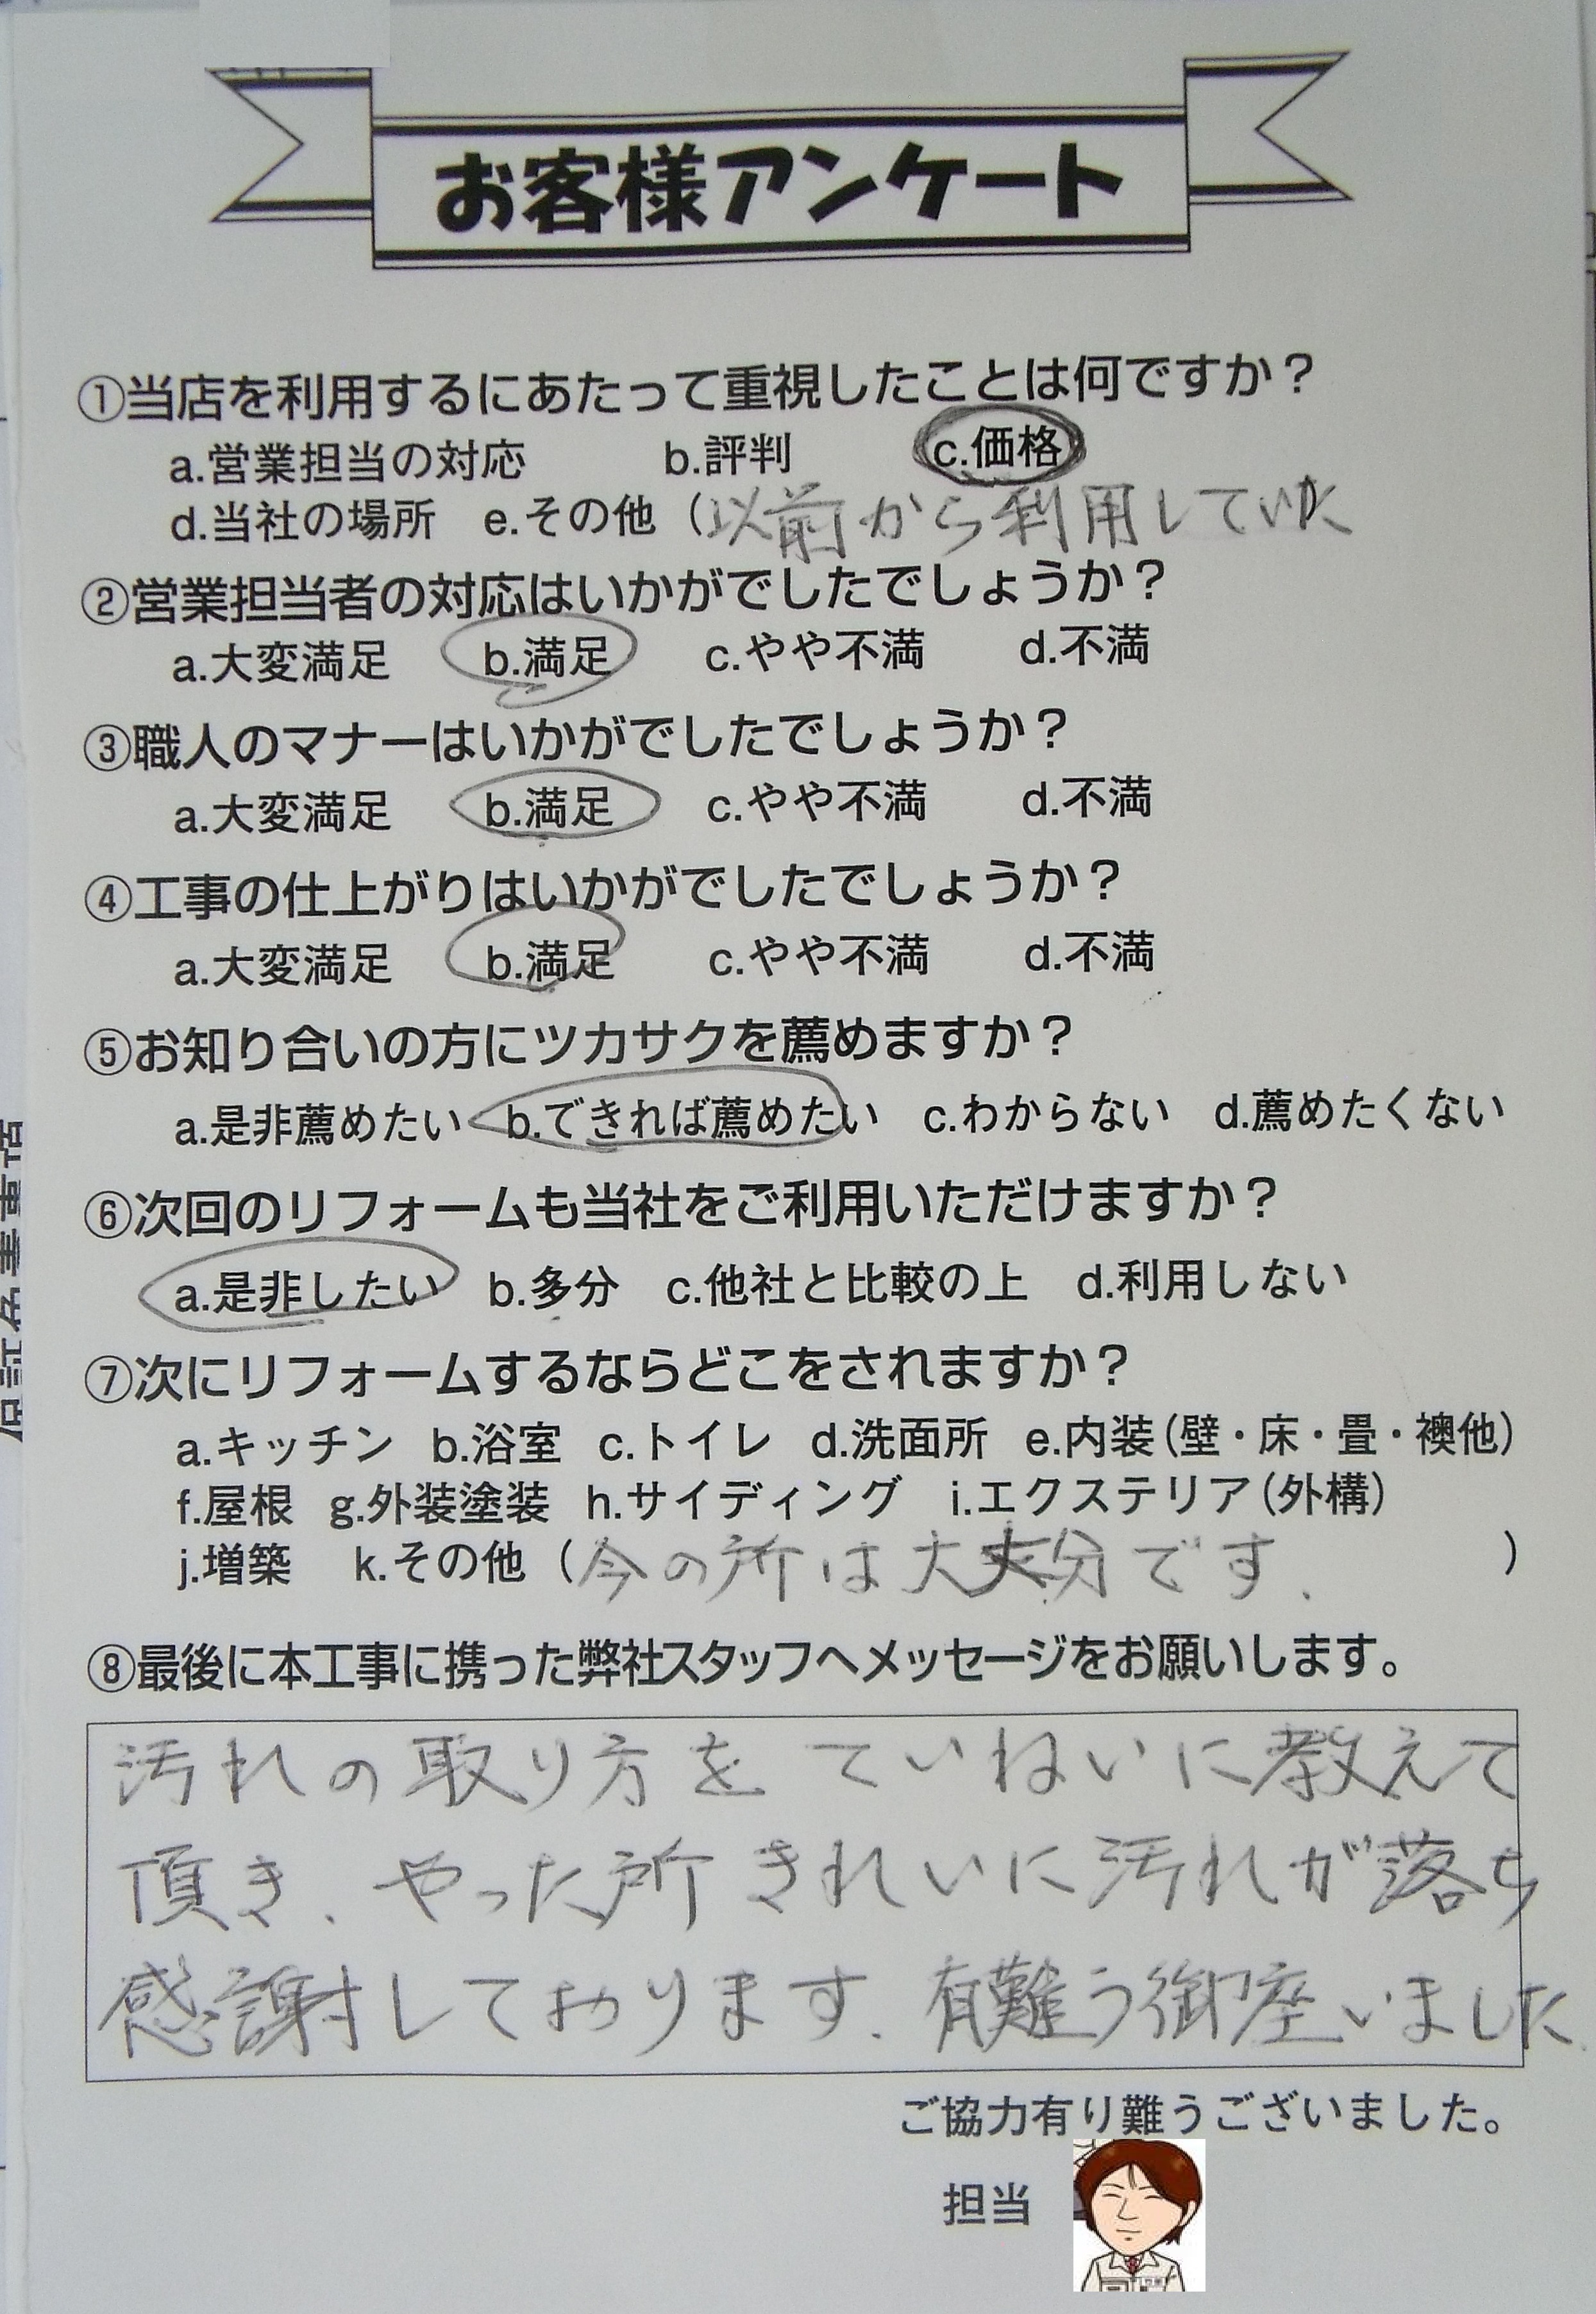 お客様アンケート
①当店を利用するにあたって重視したことは何ですか？
a.営業担当の対応 b.評判 c.価格
d.当社の場所 e.その他（以前から利用していた
②営業担当者の対応はいかがでしたでしょうか？
a.大変満足 b.満足 c.やや不満 d.不満
③職人のマナーはいかがでしたでしょうか？
a.大変満足 b.満足 c.やや不満 d.不満
④工事の仕上がりはいかがでしたでしょうか？
a.大変満足 b.満足 c.やや不満 d.不満
⑤お知り合いの方にツカサクを薦めますか？
a.是非薦めたい b.できれば薦めたい c.わからない d.薦めたくない
⑥次回のリフォームも当社をご利用いただけますか？
a.是非したい b.多分 c.他社と比較の上 d.利用しない
⑦次にリフォームするならどこをされますか？
a.キッチン b.浴室 c.トイレ d.洗面所 e.内装（壁・床・畳・襖他）
f.屋根 g.外装塗装 h.サイディング i.エクステリア（外構）
j.増築 k.その他（今の所は大丈分です. ）
⑧最後に本工事に携った弊社スタッフへメッセージをお願いします。
汚れの取り方をていねいに教えて
頂き、やった所きれいに汚れが落ち
感謝しております. 有難う御座いました.
ご協力有り難うございました。
担当